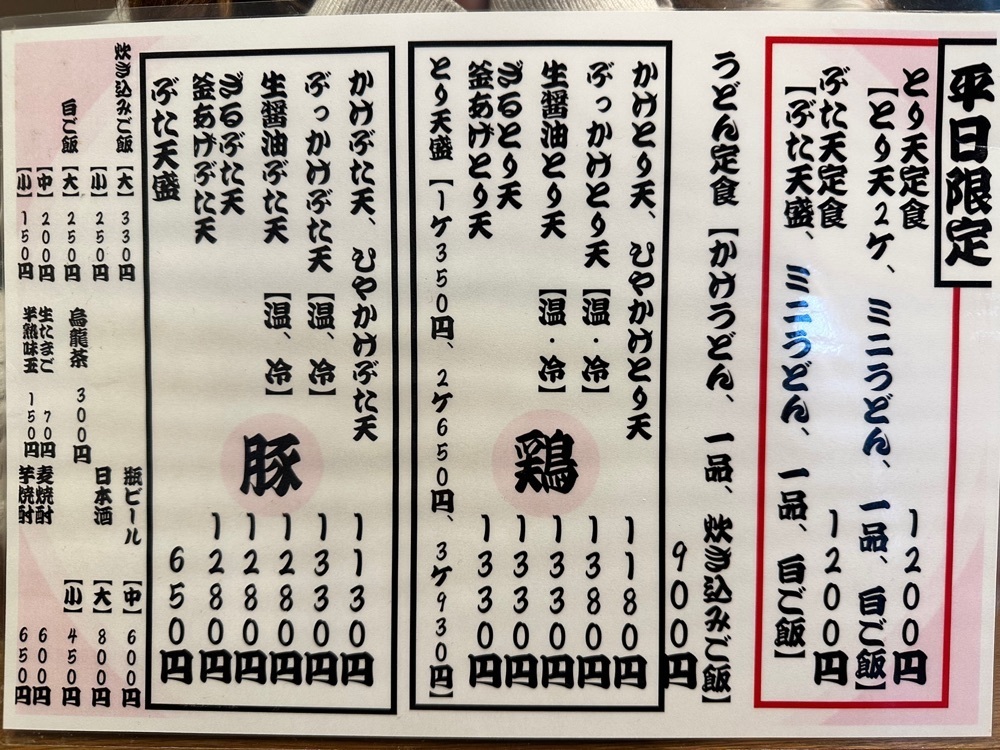 平日限定
とり天定食 1200円
【とり天2ケ、ミニうどん、一品、白ご飯】
ぶた天定食 1200円
【ぶた天盛、ミニうどん、一品、白ご飯】
うどん定食【かけうどん、一品、炊き込みご飯】
900円
かけとり天、ひやかけとり天 1180円
ぶっかけとり天【温・冷】 1380円
生醤油とり天【温・冷】 1330円
ざるとり天 1330円
釜あげとり天 1330円
とり天盛【1ケ350円、2ケ650円、3ケ930円】
鶏
かけぶた天、ひやかけぶた天 1130円
ぶっかけぶた天【温、冷】 1330円
生醤油ぶた天【温、冷】 1280円
ざるぶた天 1280円
釜あげぶた天 1280円
ぶた天盛 650円
豚
炊き込みご飯【大】330円
【小】250円
白ご飯【大】250円
【中】200円
【小】150円
烏龍茶 300円
生たまご 70円
半熟味玉 150円
瓶ビール【中】600円
日本酒【大】800円
【小】450円
麦焼酎 600円
芋焼酎 650円